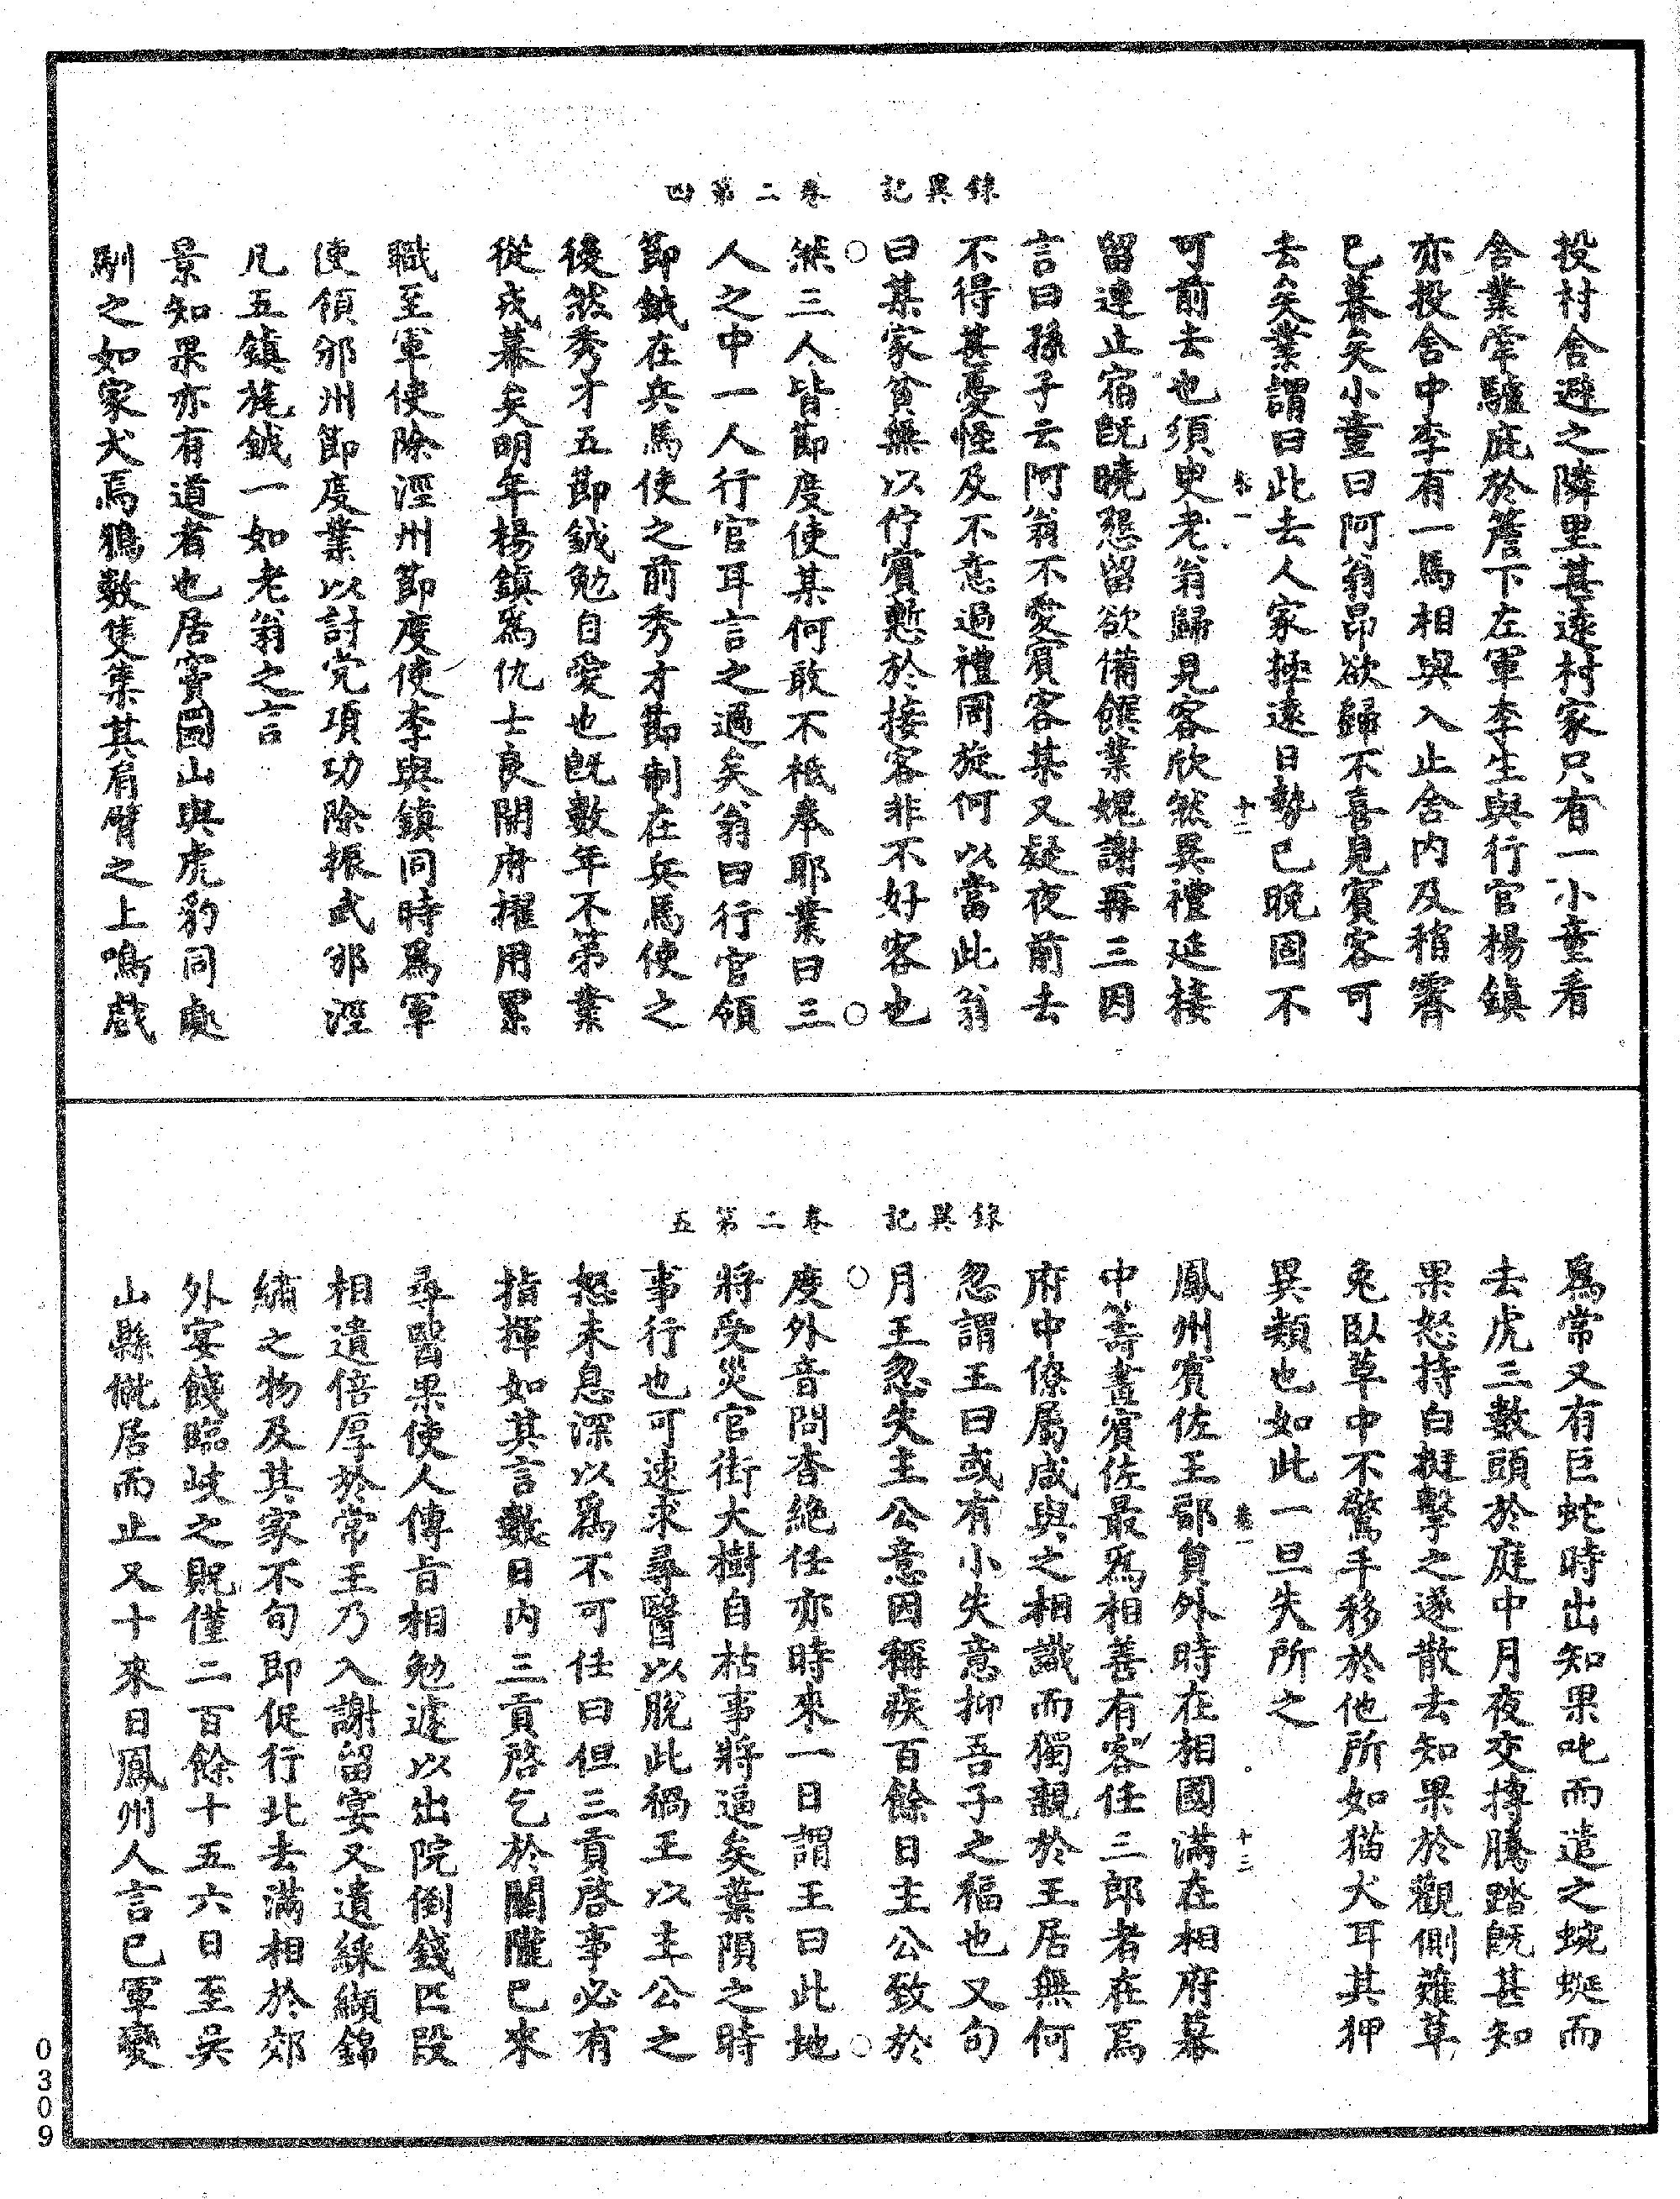 錄異記　卷二第四
投村舍避之隣里甚遠村家只有一小童看
舍業牽驢庇於簷下左軍李生與行官楊鎮
亦投舍中李有一馬相與入止舍內及稍霽
已暮矣小童曰阿翁昂欲歸不喜見賓客可
去矣業謂曰此去人家極遠日勢已晚固不
卷一　十二
可前去也須臾老翁歸見客欣然異禮延接
留連止宿旣曉懇留欲備饌業媿謝再三因
言曰孫子云阿翁不愛賓客某又疑夜前去
不得甚憂怪及不意過禮周旋何以當此翁
曰某家貧無以佇賓慙於接客非不好客也
然三人皆節度使某何敢不祗奉耶業曰三
人之中一人行官耳言之過矣翁曰行官領
節鉞在兵馬使之前秀才節制在兵馬使之
後然秀才五節鉞勉自愛也旣數年不第業
從戎幕矣明年楊鎮爲仇士良開府擢用累
職至軍使除涇州節度使李與鎮同時爲軍
使領邠州節度業以討党項功除振武邠涇
凡五鎮旄鉞一如老翁之言
景知果亦有道者也居竇圌山與虎豹同處
馴之如家犬焉鵶數隻集其肩臂之上鳴戲
錄異記　卷二第五
爲常又有巨蛇時出知果叱而遣之蜿蜒而
去虎三數頭於庭中月夜交摶騰踏旣甚知
果怒持白挺擊之遂散去知果於觀側薙草
兔臥草中不驚手移於他所如猫犬耳其狎
異類也如此一旦失所之
卷一　十三
鳳州賓佐王鄑員外時在相國滿在相府幕
中籌畫賓佐最爲相善有客任三郎者在焉
府中僚屬咸與之相識而獨親於王居無何
忽謂王曰或有小失意抑吾子之福也又句
月王忽失主公意因稱疾百餘日主公致於
度外音問杳絕任亦時來一日謂王曰此地
將受災官街大樹自枯事將逼矣葉隕之時
事行也可速求尋醫以脫此禍王以主公之
怒未息深以爲不可任曰但三貢啓事必有
指揮如其言數日內三貢啓乞於關隴已來
尋醫果使人傳旨相勉遽以出院倒錢匹段
相遺倍厚於常王乃入謝留宴又遺綵纈錦
繡之物及其家不句卽促行北去滿相於郊
外宴餞臨岐之貺僅二百餘十五六日至吳
山縣僦居而止又十來日鳳州人言已軍變
0309